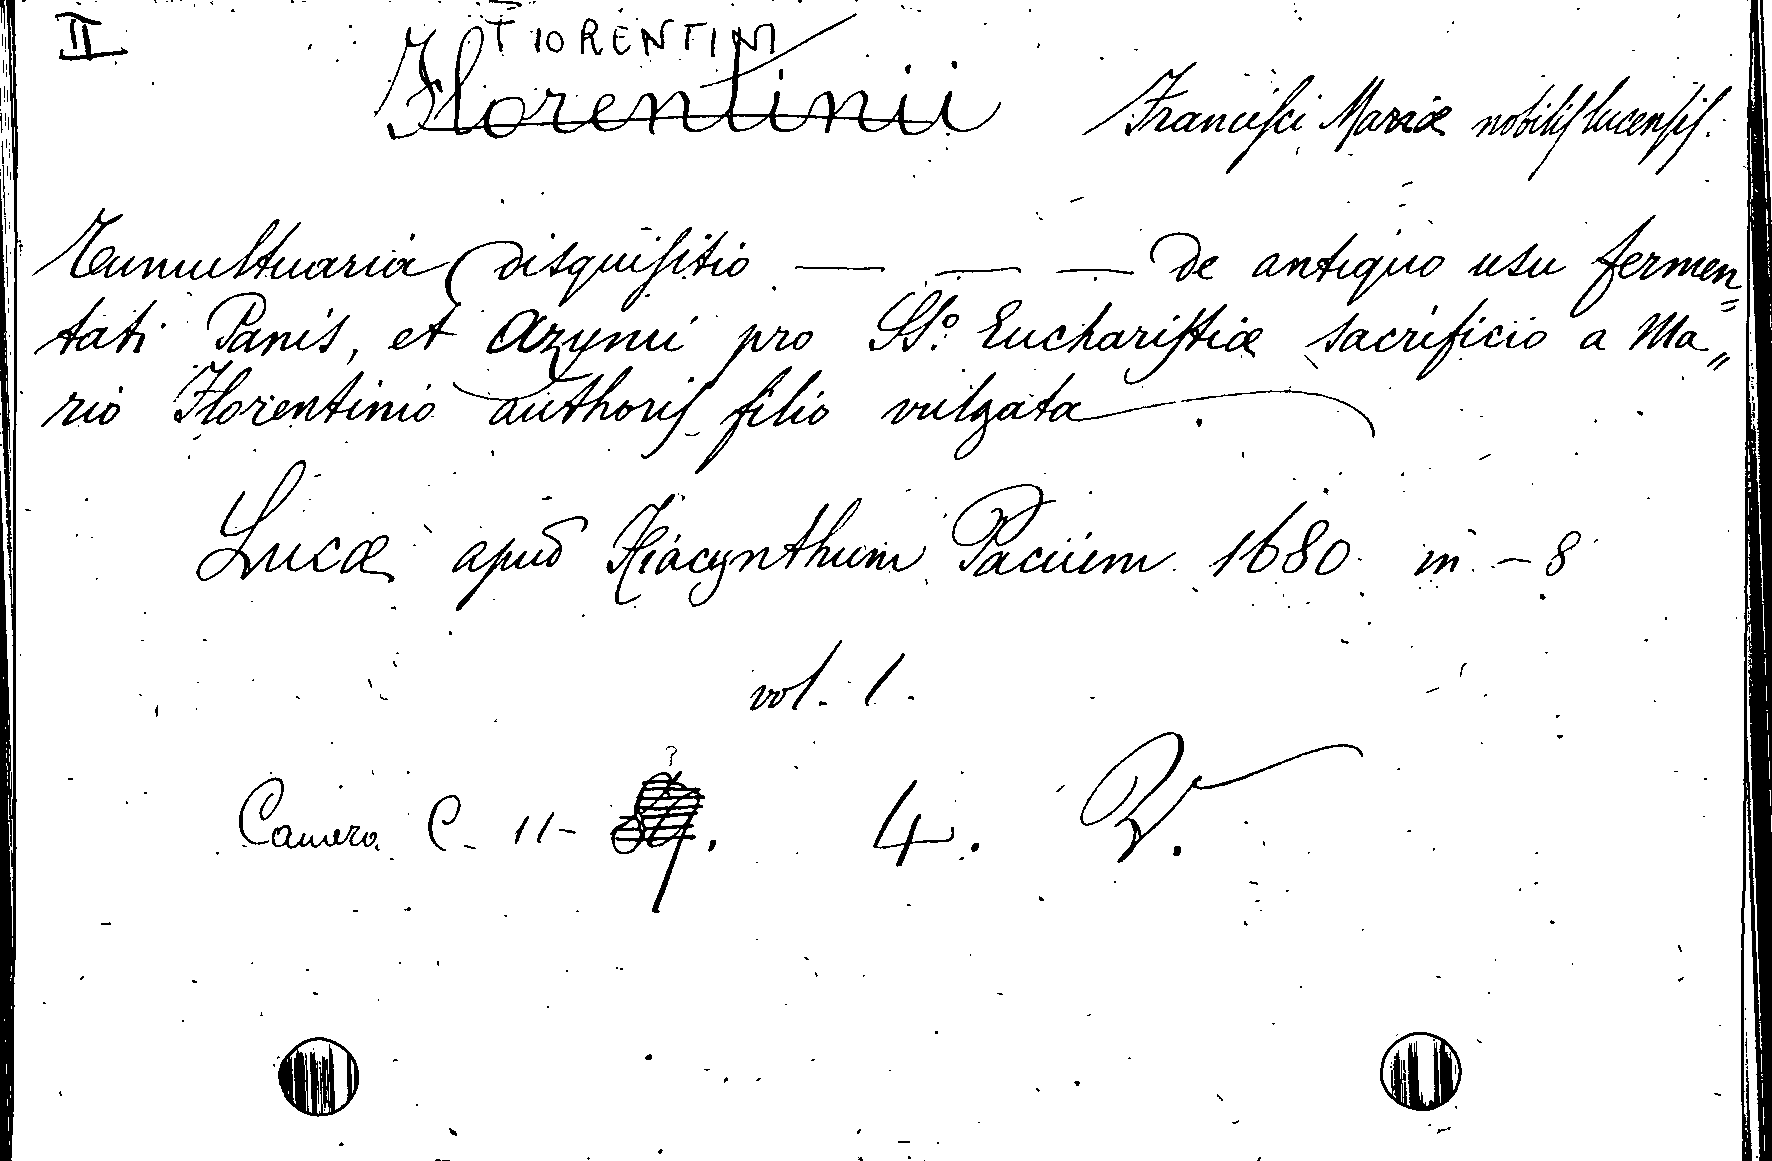 II
FIORENTINI
Florentinii Francisci Mariæ nobilis lucensis.
Tumultuaria disquisitio — — — de antiquo usu fermen=
tati Panis, et Azymi pro SSº. Eucharistiæ sacrificio a Ma„
rio Florentinio authoris filio vulgata
Lucæ apud Hiacynthum Paciium 1680 in - 8
vol. 1.
Camera C. 11- 4. V.